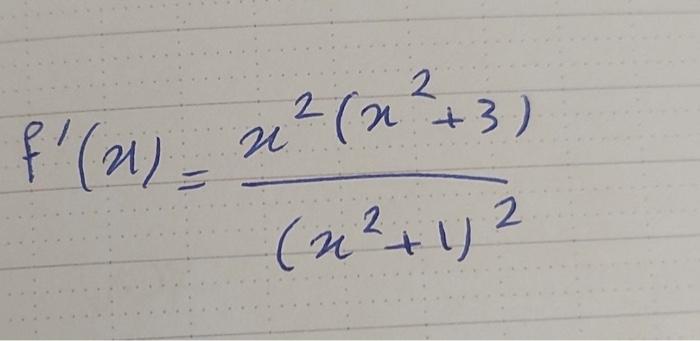 f'(x) = x²(x²+3) / (x²+1)²